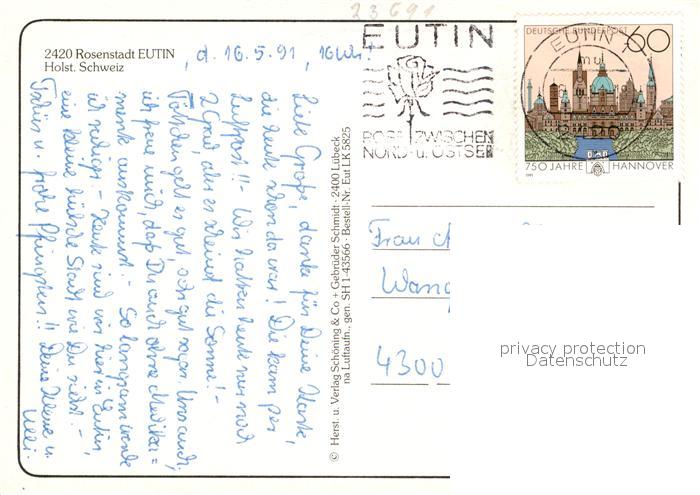 23691
2420 Rosenstadt EUTIN
Holst. Schweiz
, d. 16.5.91, 16 Uhr!
Liebe Große, danke für Deine Karte,
die heute schon da war! Die kam per
Luftpost!! - Wir hatten heute nur noch
2 Grad, aber es scheint die Sonne! -
geht es gut, sehr gut sogar. Und auch
ich freue mich, daß Du auch ohne Medika=
mente auskommst. - So langsam werde
ich - Heute sind wir hier in Eutin,
eine kleine hübsche Stadt wie Du siehst. -
Tschüs u. frohe Pfingsten!! Deine Kleine u.
Willi.
© Herst. u. Verlag Schöning & Co + Gebrüder Schmidt · 2400 Lübeck
na Luftaufn., gen. SH 1-43566 · Bestell-Nr. Eut LK 5825
EUTIN
ROSE ZWISCHEN
NORD- u. OSTSEE
EUTIN
DEUTSCHE BUNDESPOST
60
750 JAHRE HANNOVER
1991
Frau
Wang
4300
privacy protection
Datenschutz